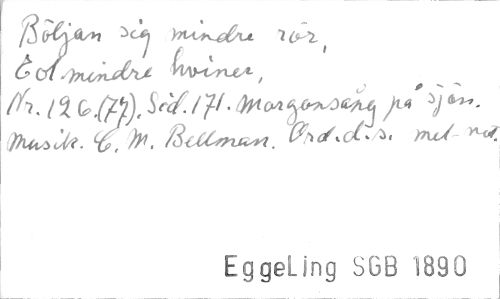 Böljan sig mindre rör,
Eol mindre hviner,
Nr. 126.(77). Sid. 171. Morgonsång på sjön.
Musik. C. M. Bellman. Ord. d.s. mel-not.
EggeLing SGB 1890